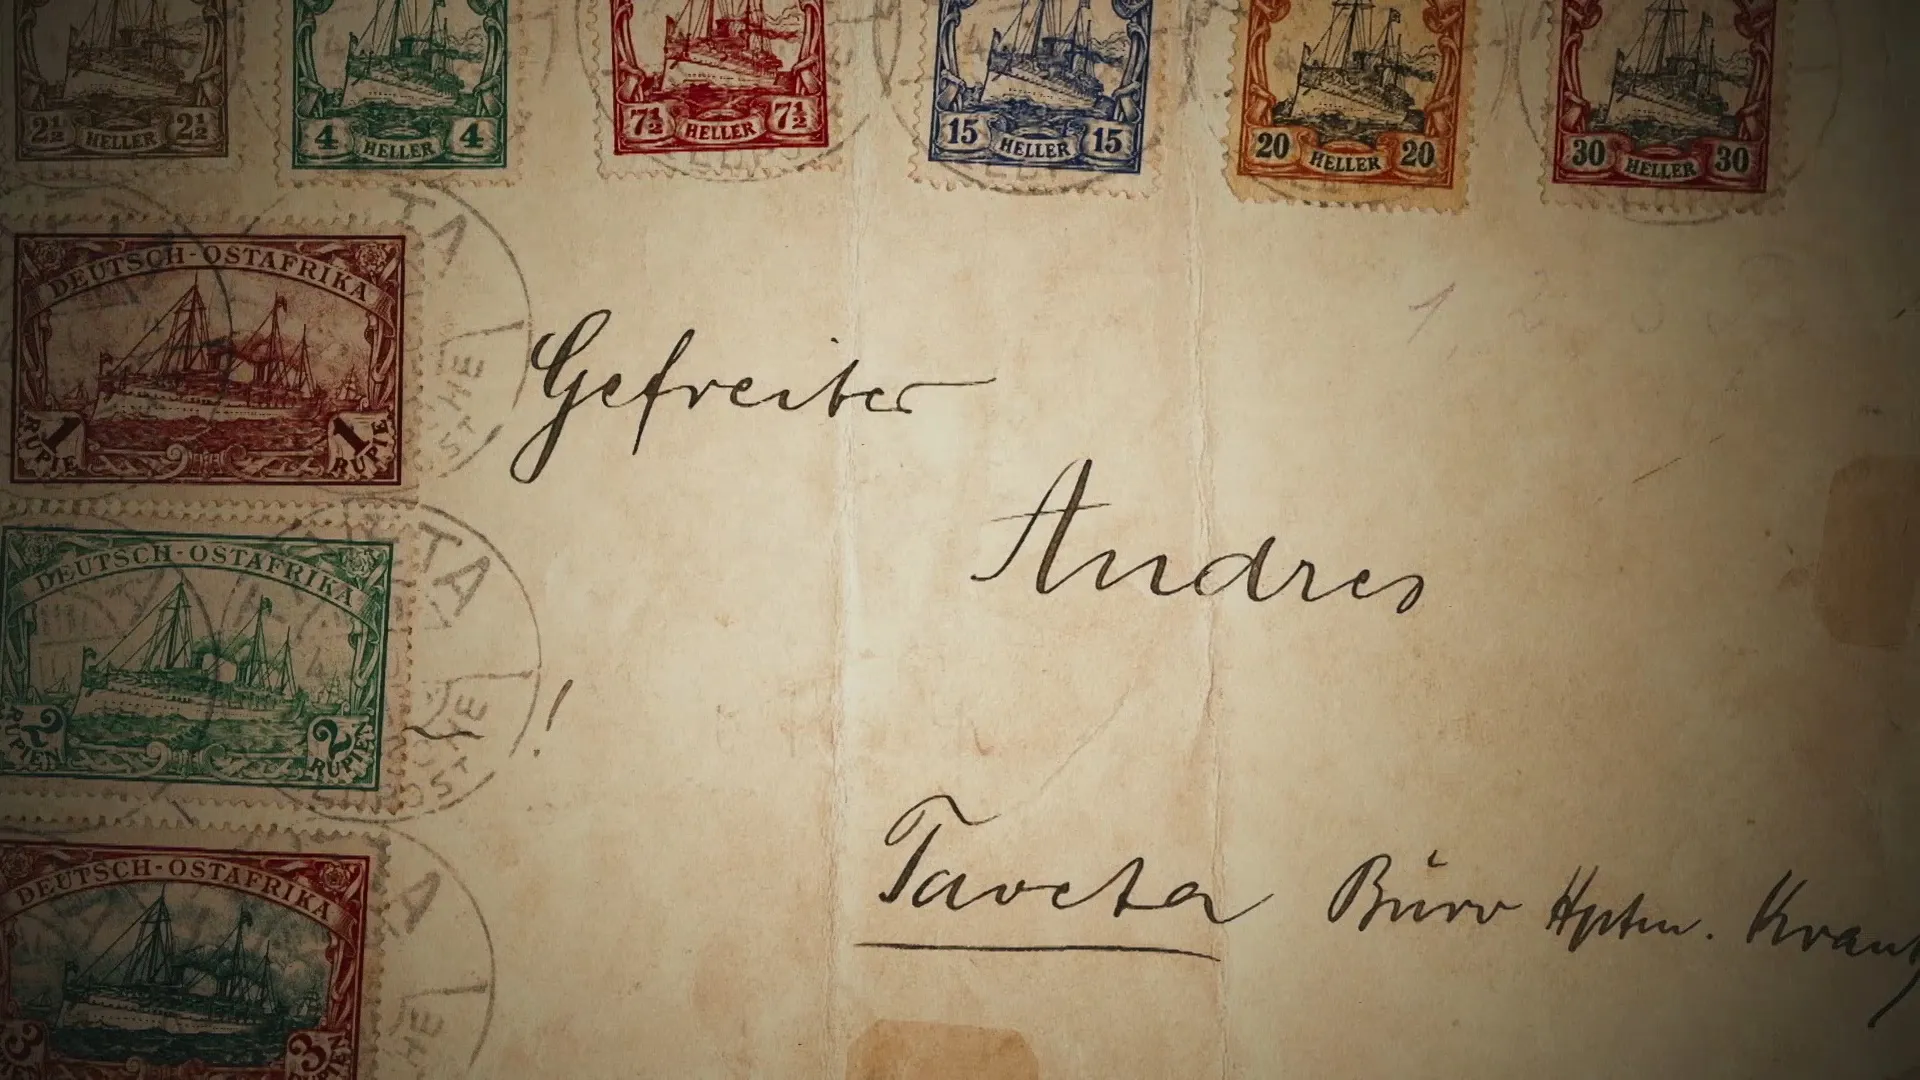 2½ HELLER 2½
4 HELLER 4
7½ HELLER 7½
15 HELLER 15
20 HELLER 20
30 HELLER 30
DEUTSCH-OSTAFRIKA
1 RUPIE 1 RUPIE
DEUTSCH-OSTAFRIKA
2 RUPIEN 2 RUPIEN
DEUTSCH-OSTAFRIKA
3 3
Gefreiter
Andres
!
Taveta Büro Hptm.